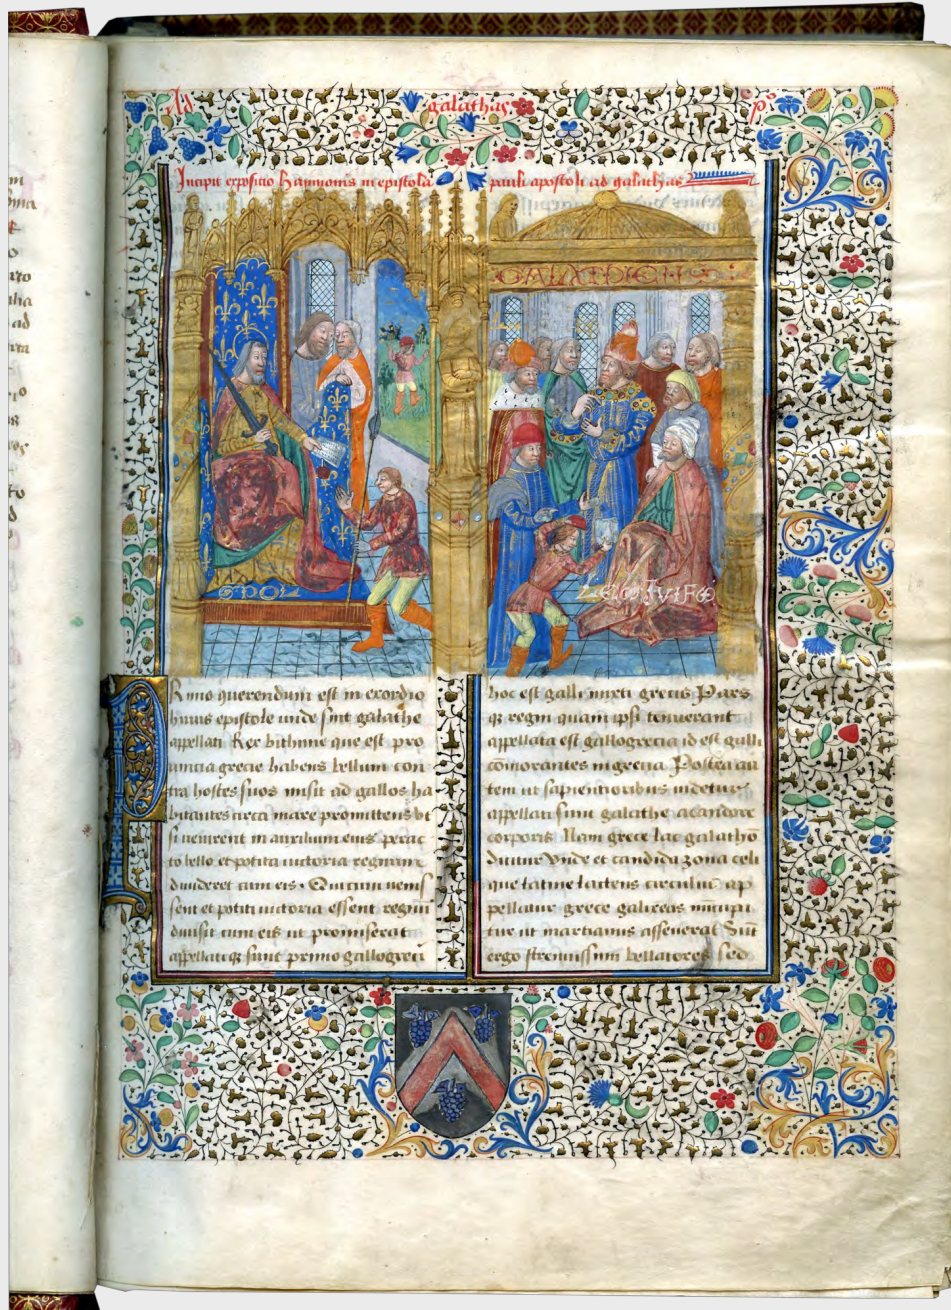 Ad galathas p^s
Incipit expositio haymonis in epistolā pauli apostoli ad galathas
Rimo querendum est in exordio
huius epistole unde sint galathe
appellati Rex bithinie que est pro
uincia grecie habens bellum con
tra hostes suos misit ad gallos ha
bitantes circa mare promittens ut
si uenirent in auxilium eius perac
to bello et potita uictoria regnum
diuideret cum eis. Qui cum uenis
sent et potiti uictoria essent regnū
diuisit cum eis ut promiserat
appellatiq; sunt primo gallogreci
hoc est galli mixti grecis Pars
q; regni quam ipsi tenuerant
appellata est gallogrecia id est galli
cōmorantes in grecia Postea au
tem ut sapientioribus uidetur
appellati sunt galathe a candore
corporis Nam grece lac galathō
dicitur Vnde et candida zona celi
que latine lacteus circulus ap
pellatur grece galixeas nūcupa
tur ut martianus asseuerat Sūt
ergo strenuissimi bellatores sed